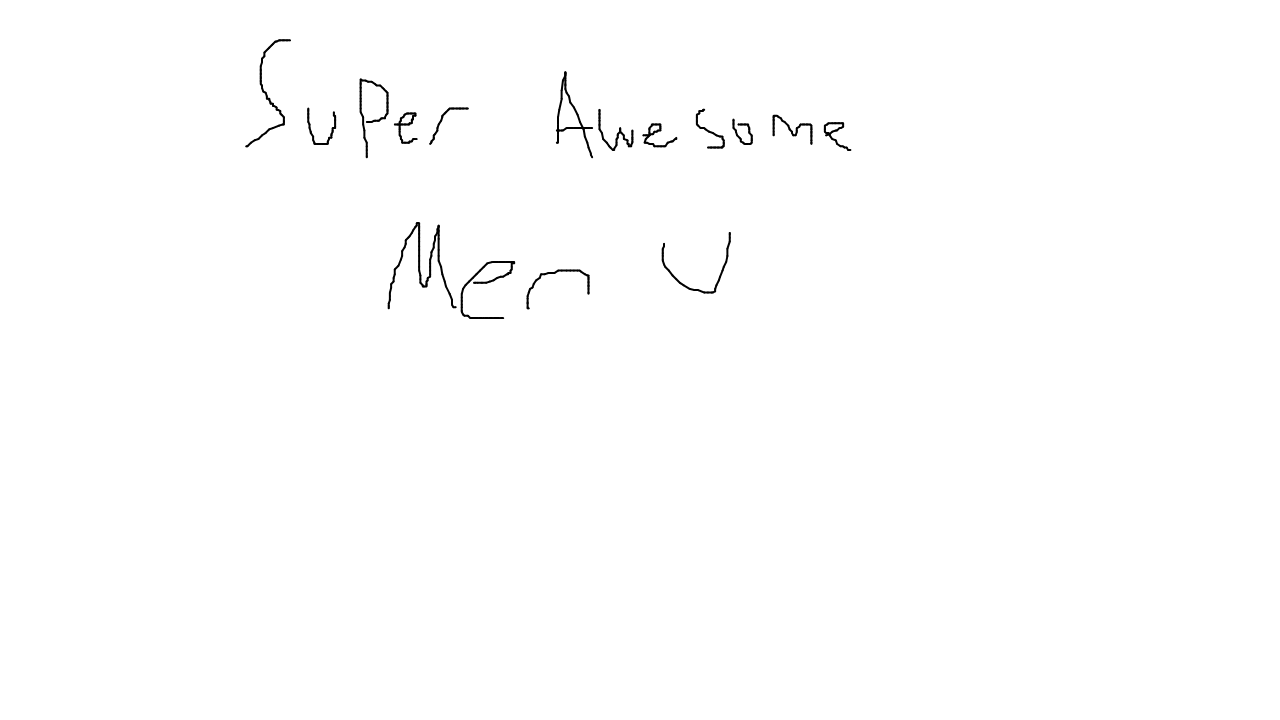 Super Awesome
Men U